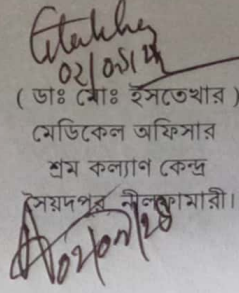 ০২/০৫/২৮
( ডাঃ মোঃ ইসতেখার )
মেডিকেল অফিসার
শ্রম কল্যাণ কেন্দ্র
সৈয়দপুর নীলফামারী।